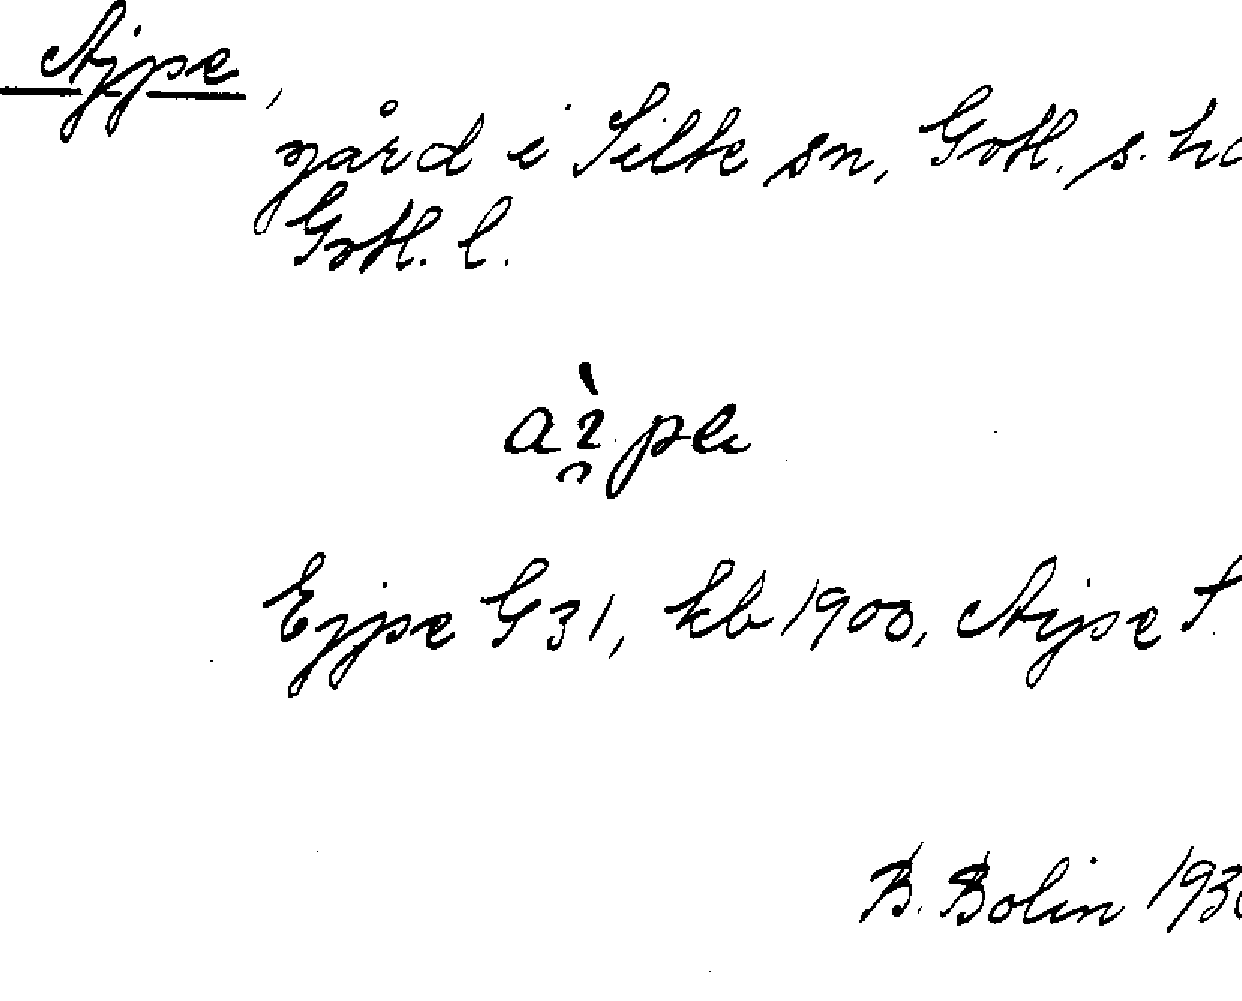 Ajpe,
gård i Silte sn, Gotl. s. hd
Gotl. l.
aı̯̀pe
Ejpe G 31, kb 1900, Ajpe T.
B. Bolin 193